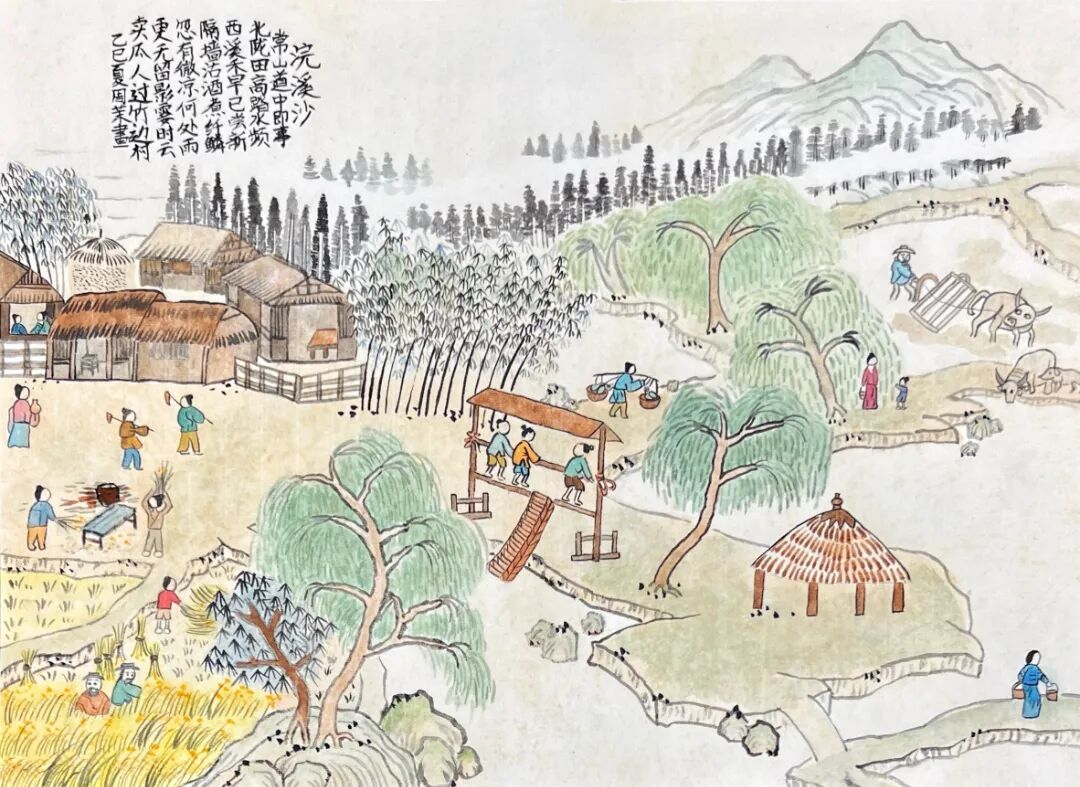 浣溪沙
常山道中即事
北陇田高踏水频
西溪禾早已尝新
隔墙沽酒煮纤鳞
忽有微凉何处雨
更无留影霎时云
卖瓜人过竹边村
乙巳夏周畫